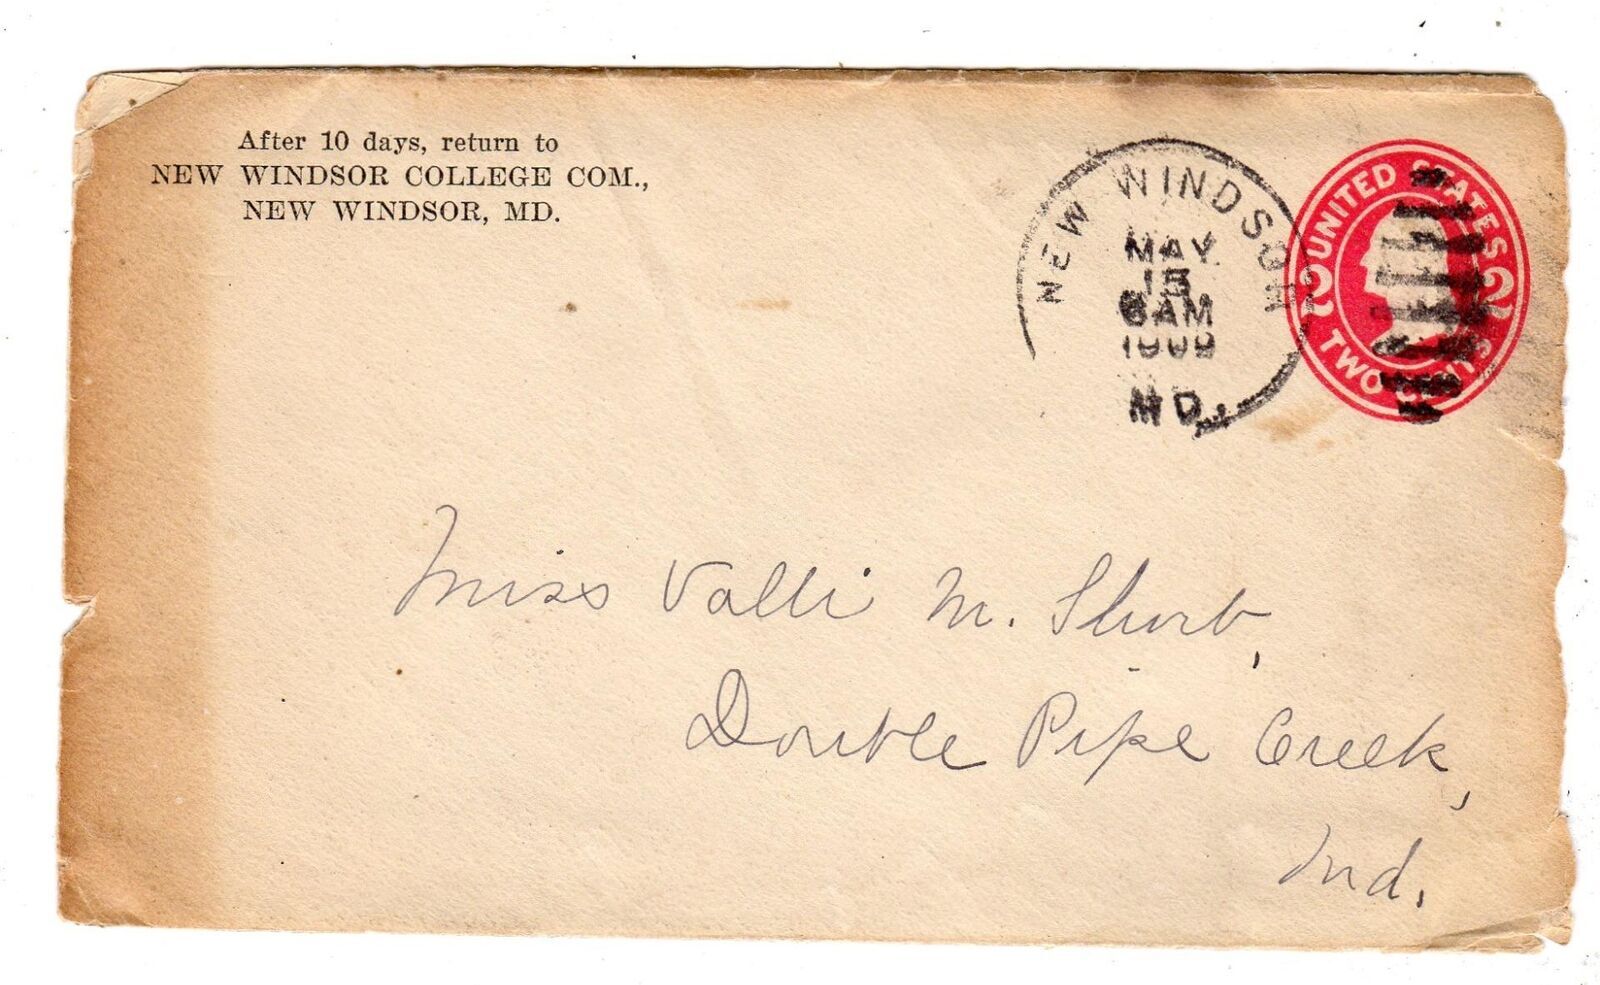 After 10 days, return to
NEW WINDSOR COLLEGE COM.,
NEW WINDSOR, MD.
NEW WINDSOR
MAY
15
6AM
1909
MD.
UNITED STATES
2 2
TWO CENTS
Miss Valli M. Shorb,
Double Pipe Creek,
Md.